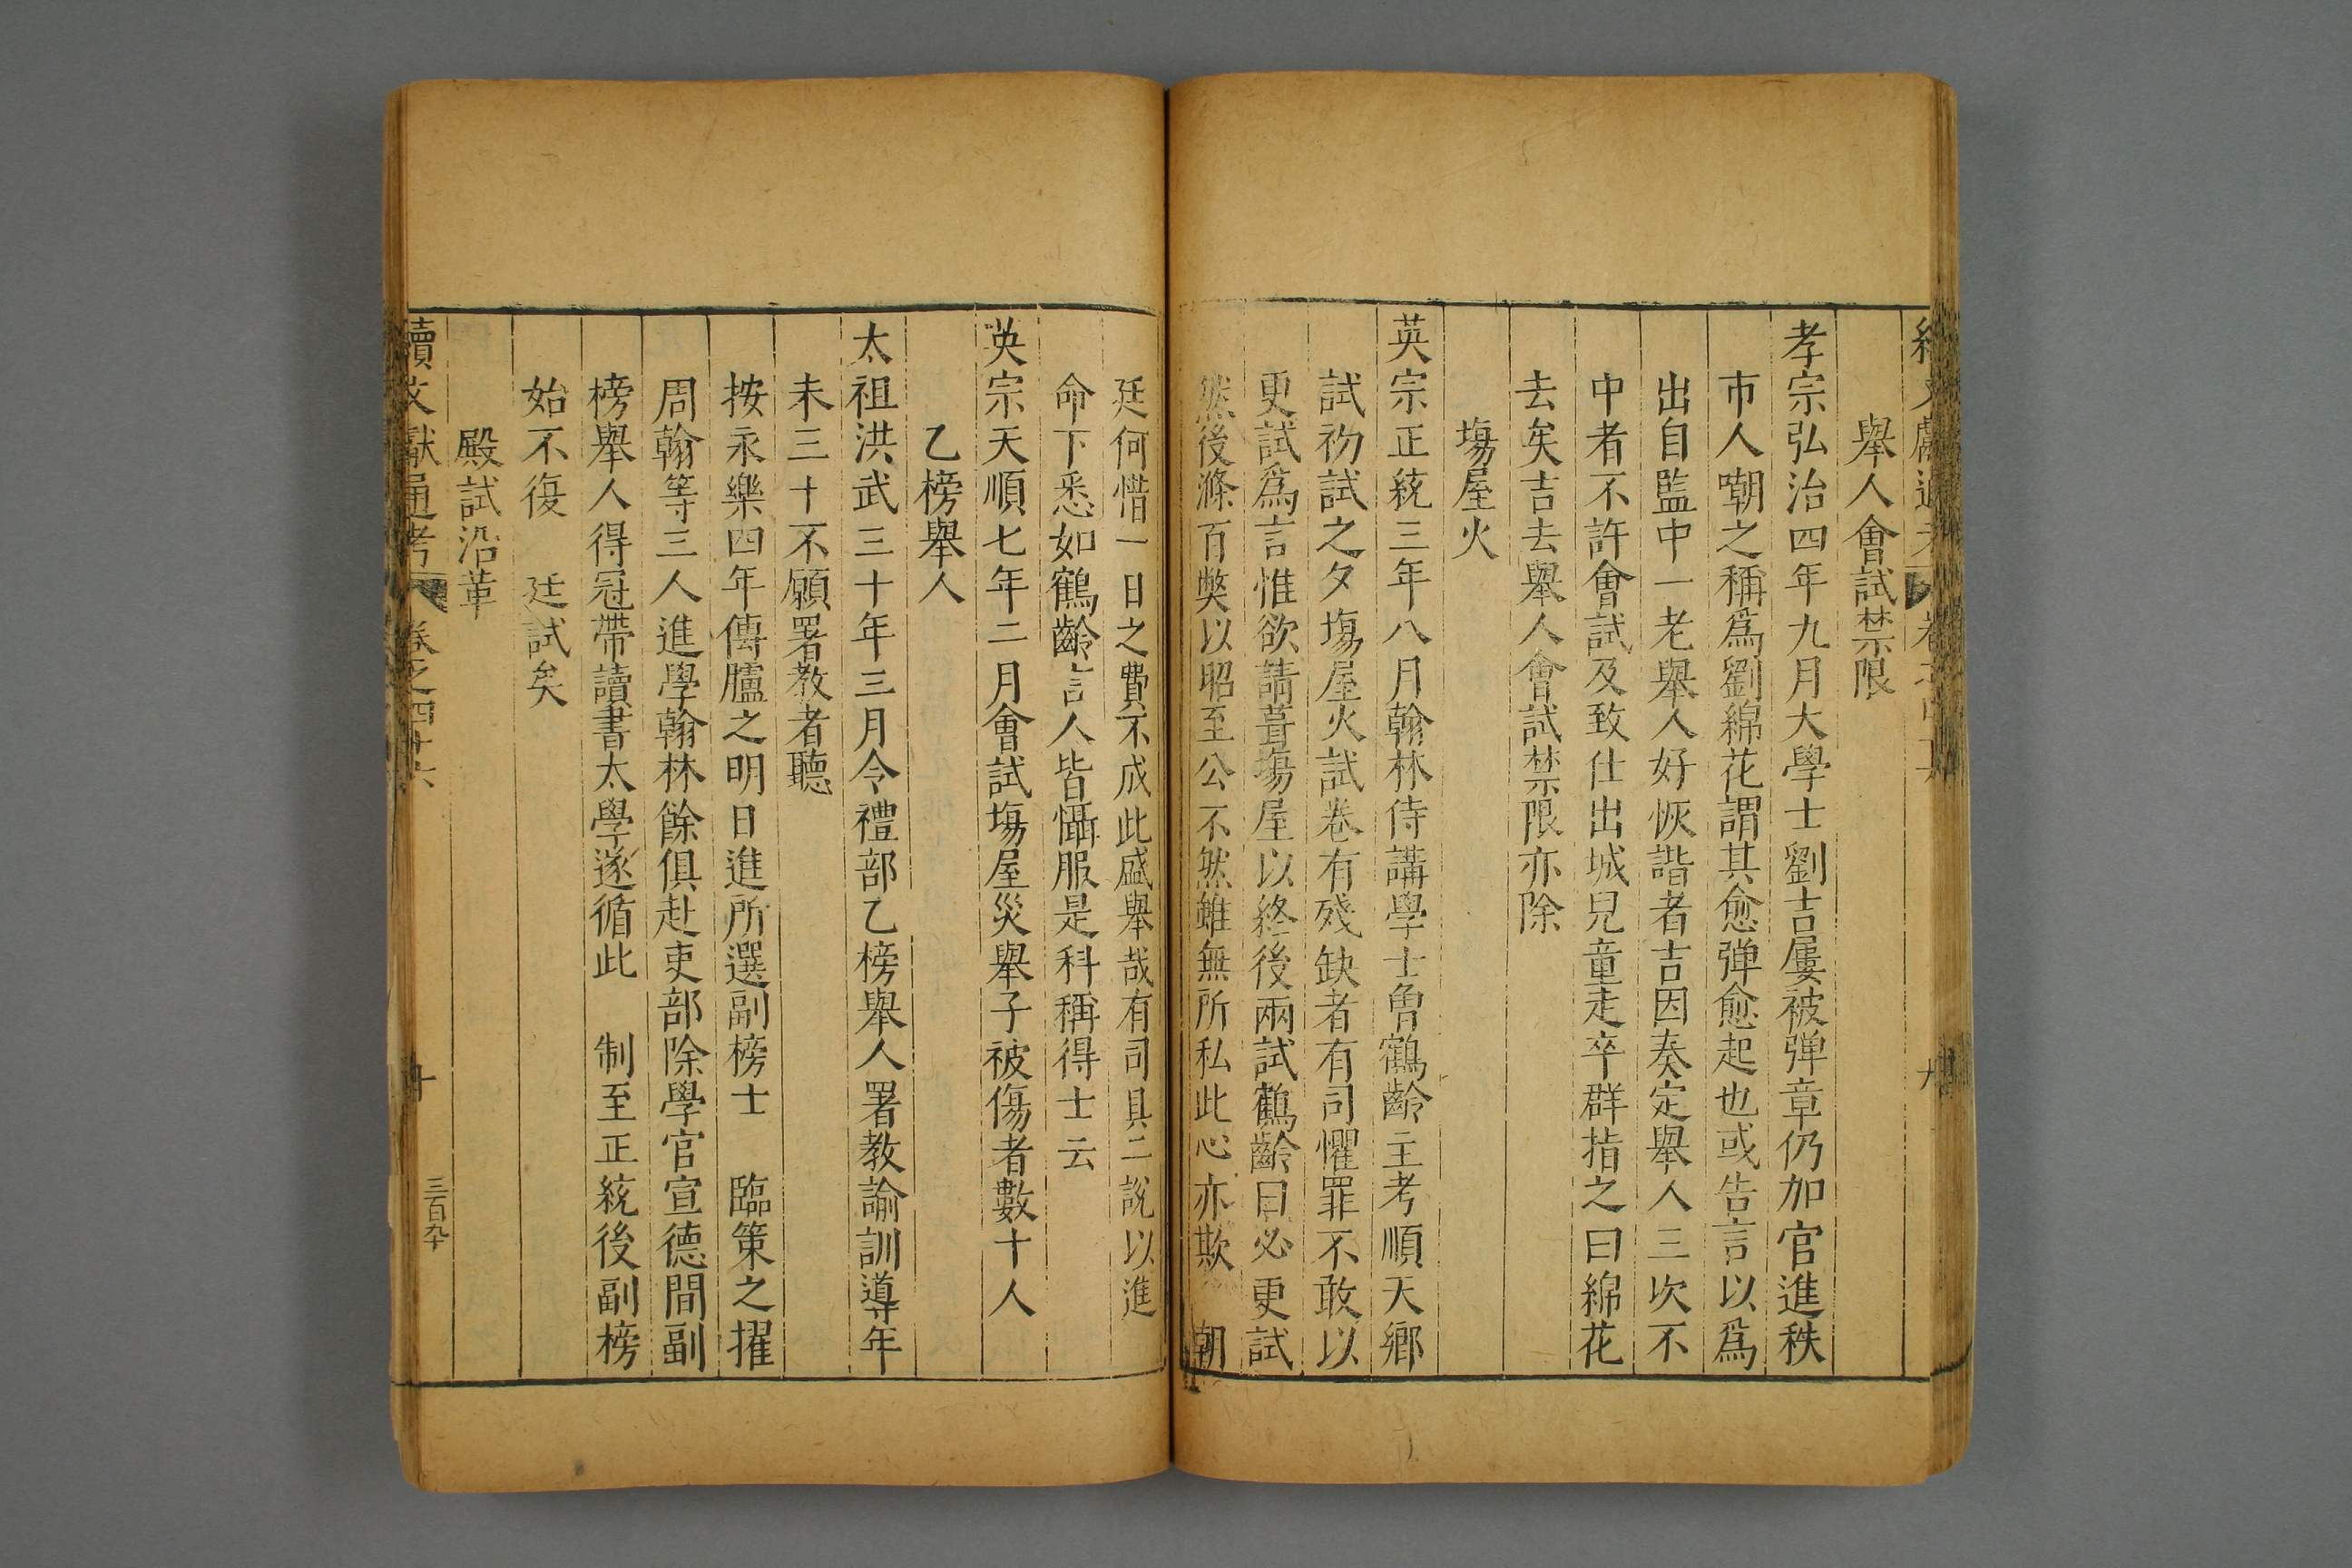 舉人會試禁限
孝宗弘治四年九月大學士劉吉屢被彈章仍加官進秩
市人嘲之稱爲劉綿花謂其愈彈愈起也或告言以爲
出自監中一老舉人好恢諧者吉因奏定舉人三次不
中者不許會試及致仕出城兒童走卒群指之曰綿花
去矣吉去舉人會試禁限亦除
塲屋火
英宗正統三年八月翰林侍講學士曾鶴齡主考順天鄉
試初試之夕塲屋火試卷有殘缺者有司懼罪不敢以
更試爲言惟欲請葺塲屋以終後兩試鶴齡曰必更試
然後滌百弊以昭至公不然雖無所私此心亦欺 朝
廷何惜一日之費不成此盛舉哉有司具二說以進
命下悉如鶴齡言人皆懾服是科稱得士云
英宗天順七年二月會試塲屋災舉子被傷者數十人
乙榜舉人
太祖洪武三十年三月令禮部乙榜舉人署教諭訓導年
未三十不願署教者聽
按永樂四年傳臚之明日進所選副榜士 臨策之擢
周翰等三人進學翰林餘俱赴吏部除學官宣德間副
榜舉人得冠帶讀書太學遂循此 制至正統後副榜
始不復 廷試矣
殿試沿革
續文獻通考 卷之四十六 十 三百九十